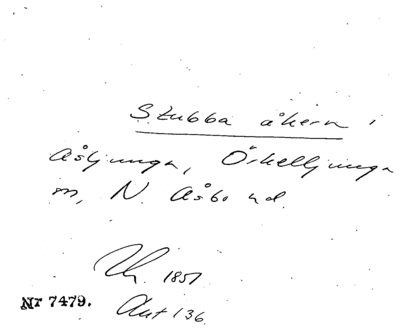 Stubba åkern i
Åsljunga, Örkelljunga
m, N. Åsbo hd.
1851
Nr 7479.
Aut 136.